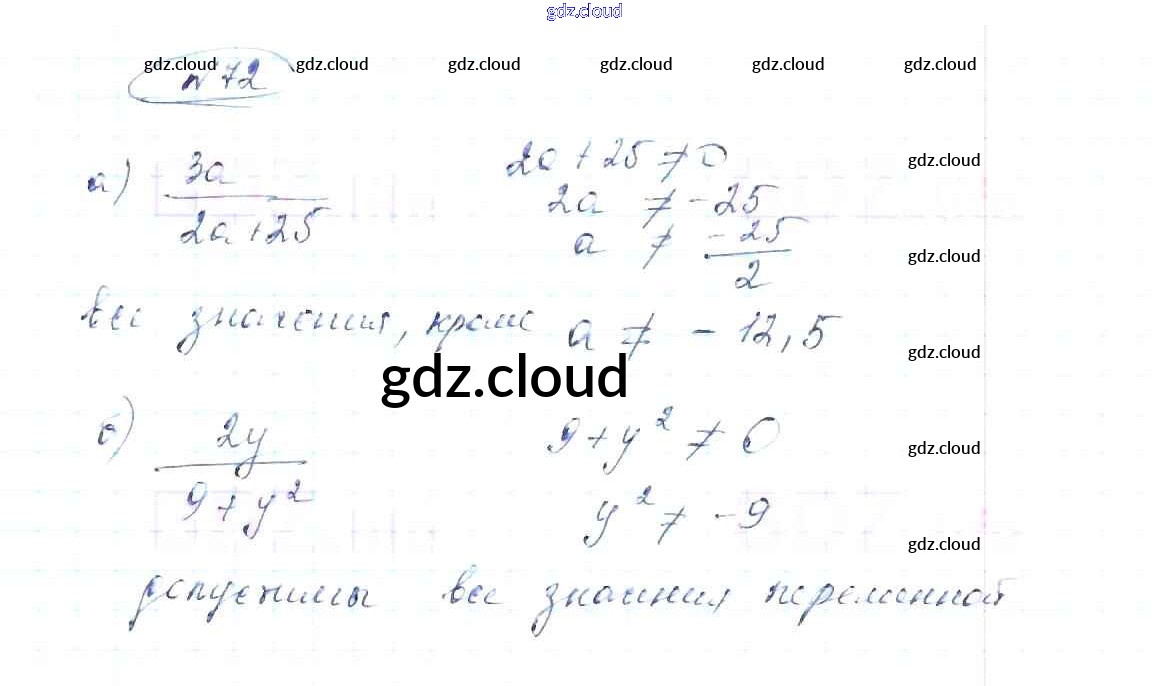 gdz.cloud
gdz.cloud gdz.cloud gdz.cloud gdz.cloud gdz.cloud gdz.cloud
№72
а) 3a / 2a+25 2a+25≠0
gdz.cloud
2a ≠ -25
a ≠ -25/2
gdz.cloud
все значения, кроме a ≠ -12,5
gdz.cloud
gdz.cloud
б) 2y / 9+y² 9+y² ≠ 0
gdz.cloud
y² ≠ -9
gdz.cloud
допустимы все значения переменной